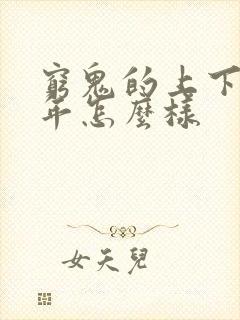 窮鬼的上下
年怎麼樣
女天兒